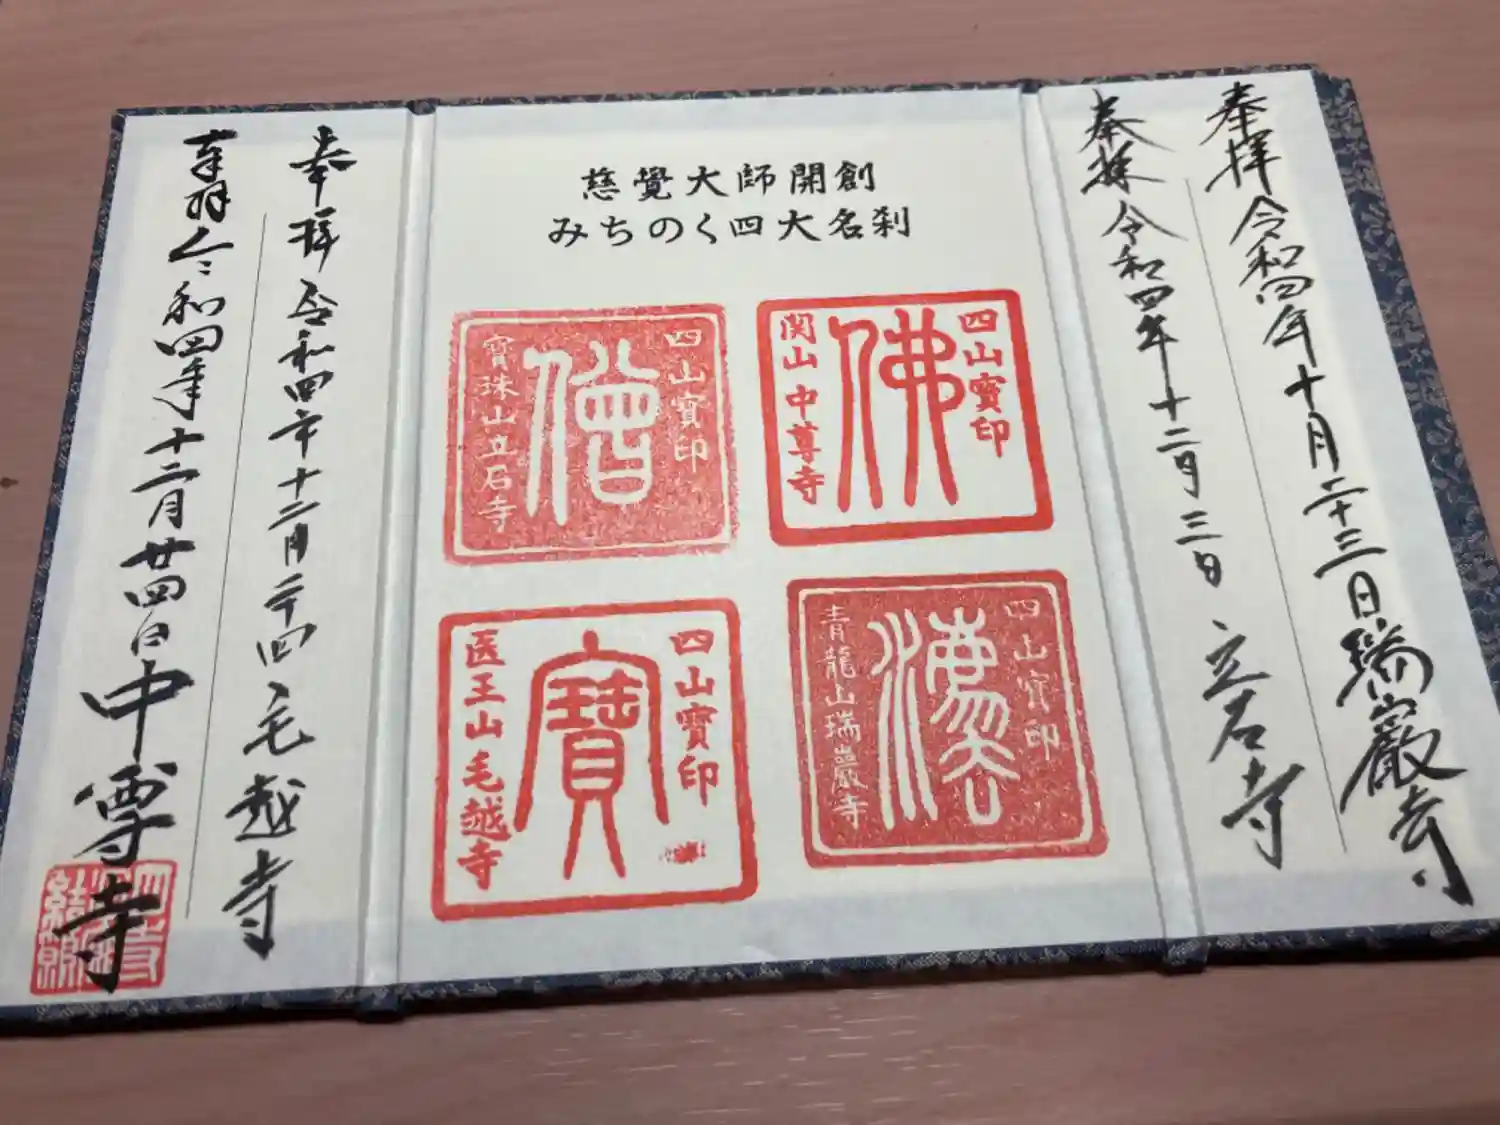 奉拝 令和四年十月二十三日 瑞巌寺
奉拝 令和四年十二月三日 立石寺
慈覺大師開創
みちのく四大名刹
四山寳印
佛
関山中尊寺
四山寳印
僧
寳珠山立石寺
四山寳印
法
青龍山瑞巌寺
四山寳印
寳
医王山毛越寺
奉拝 令和四年十二月二十四 毛越寺
奉拝 令和四年十二月廿四日 中尊寺